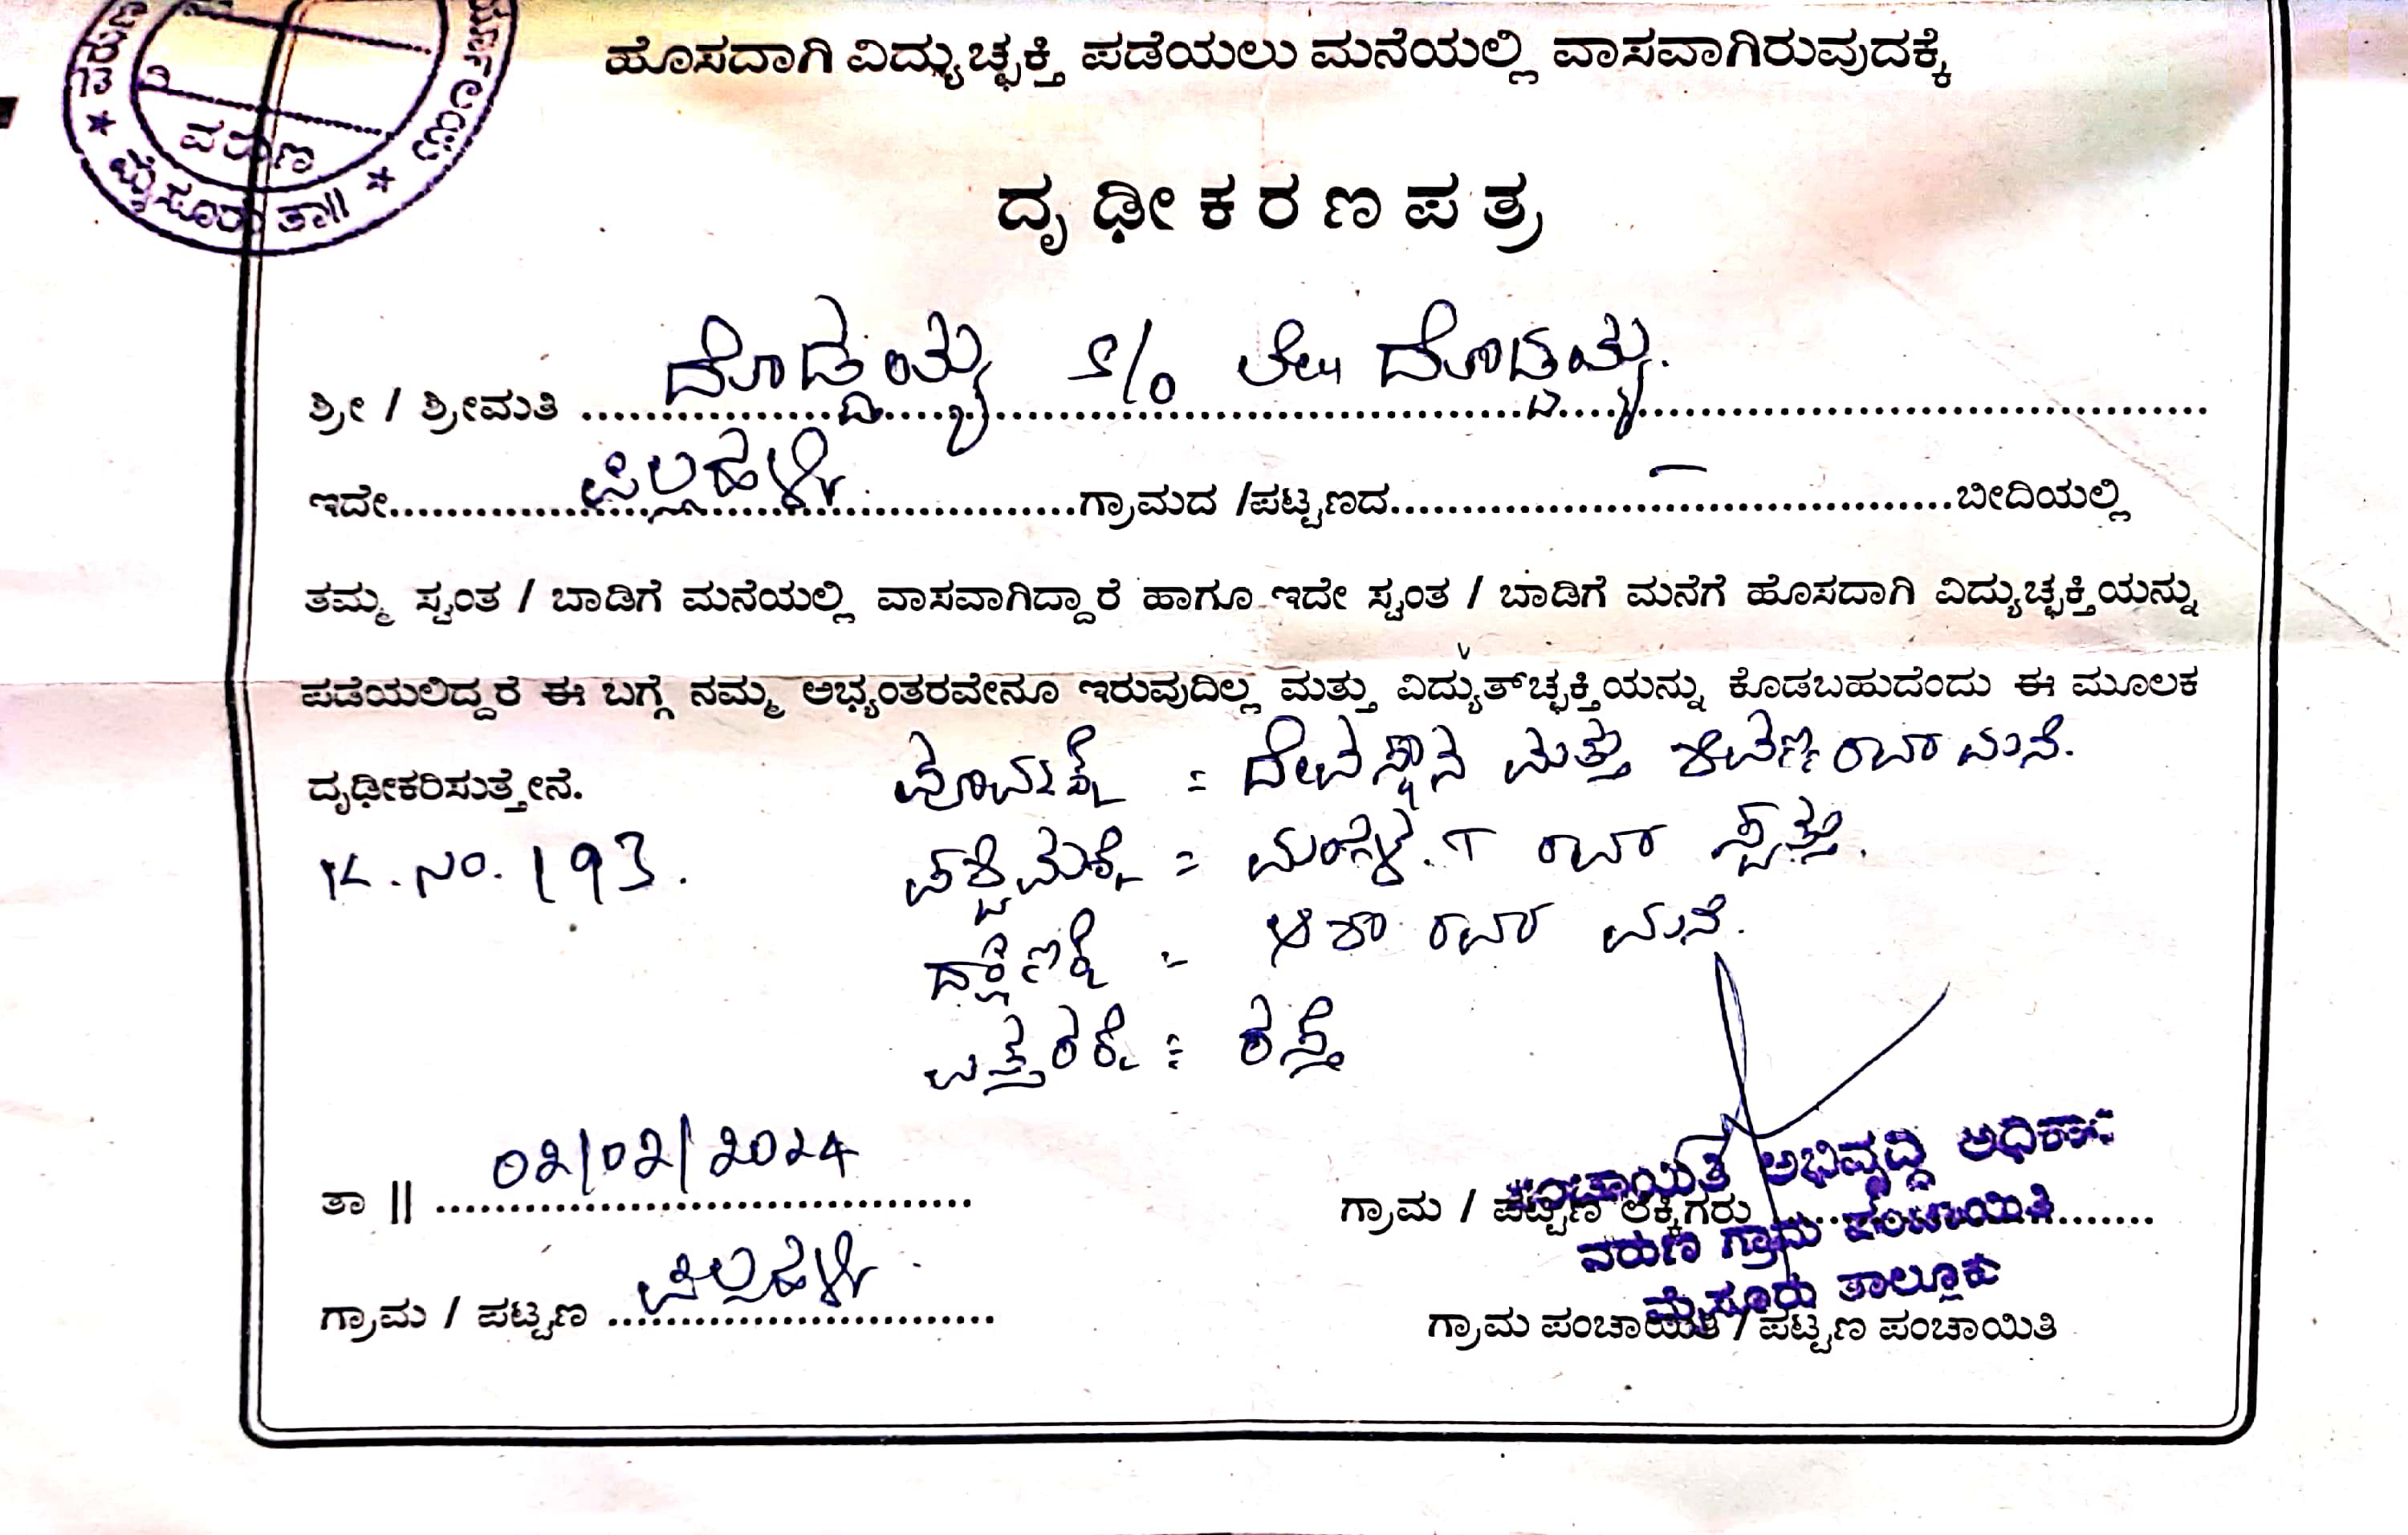 ಹೊಸದಾಗಿ ವಿದ್ಯುಚ್ಛಕ್ತಿ ಪಡೆಯಲು ಮನೆಯಲ್ಲಿ ವಾಸವಾಗಿರುವುದಕ್ಕೆ
ವರುಣ
★ ಮೈಸೂರು ತಾ|| ★
ದೃಢೀಕರಣಪತ್ರ
ಶ್ರೀ / ಶ್ರೀಮತಿ ದೊಡ್ಡಯ್ಯ S/o ಲೇ|| ದೊಡ್ಡಯ್ಯ.
ಇದೇ ಪಿಲ್ಲಹಳ್ಳಿ ಗ್ರಾಮದ /ಪಟ್ಟಣದ — ಬೀದಿಯಲ್ಲಿ
ತಮ್ಮ ಸ್ವಂತ / ಬಾಡಿಗೆ ಮನೆಯಲ್ಲಿ ವಾಸವಾಗಿದ್ದಾರೆ ಹಾಗೂ ಇದೇ ಸ್ವಂತ / ಬಾಡಿಗೆ ಮನೆಗೆ ಹೊಸದಾಗಿ ವಿದ್ಯುಚ್ಛಕ್ತಿಯನ್ನು
ಪಡೆಯಲಿದ್ದರೆ ಈ ಬಗ್ಗೆ ನಮ್ಮ ಅಭ್ಯಂತರವೇನೂ ಇರುವುದಿಲ್ಲ ಮತ್ತು ವಿದ್ಯುತ್‌ಚ್ಛಕ್ತಿಯನ್ನು ಕೊಡಬಹುದೆಂದು ಈ ಮೂಲಕ
ದೃಢೀಕರಿಸುತ್ತೇನೆ. ಪೂರ್ವಕ್ಕೆ = ದೇವಸ್ಥಾನ ಮತ್ತು ರವರ ಮನೆ.
K. No. 193. ಪಶ್ಚಿಮಕ್ಕೆ = ಮಂಗಳ.T ರವರ ಸ್ವತ್ತು.
ದಕ್ಷಿಣಕ್ಕೆ = ರವರ ಮನೆ.
ಉತ್ತರಕ್ಕೆ = ರಸ್ತೆ
ತಾ || 02/02/2024
ಗ್ರಾಮ / ಪಟ್ಟಣ ಲೆಕ್ಕಿಗರು
ಪಂಚಾಯಿತಿ ಅಭಿವೃದ್ಧಿ ಅಧಿಕಾರಿ
ವರುಣ ಗ್ರಾಮ ಪಂಚಾಯಿತಿ
ಮೈಸೂರು ತಾಲ್ಲೂಕು
ಗ್ರಾಮ / ಪಟ್ಟಣ ಪಿಲ್ಲಹಳ್ಳಿ
ಗ್ರಾಮ ಪಂಚಾಯಿತಿ / ಪಟ್ಟಣ ಪಂಚಾಯಿತಿ